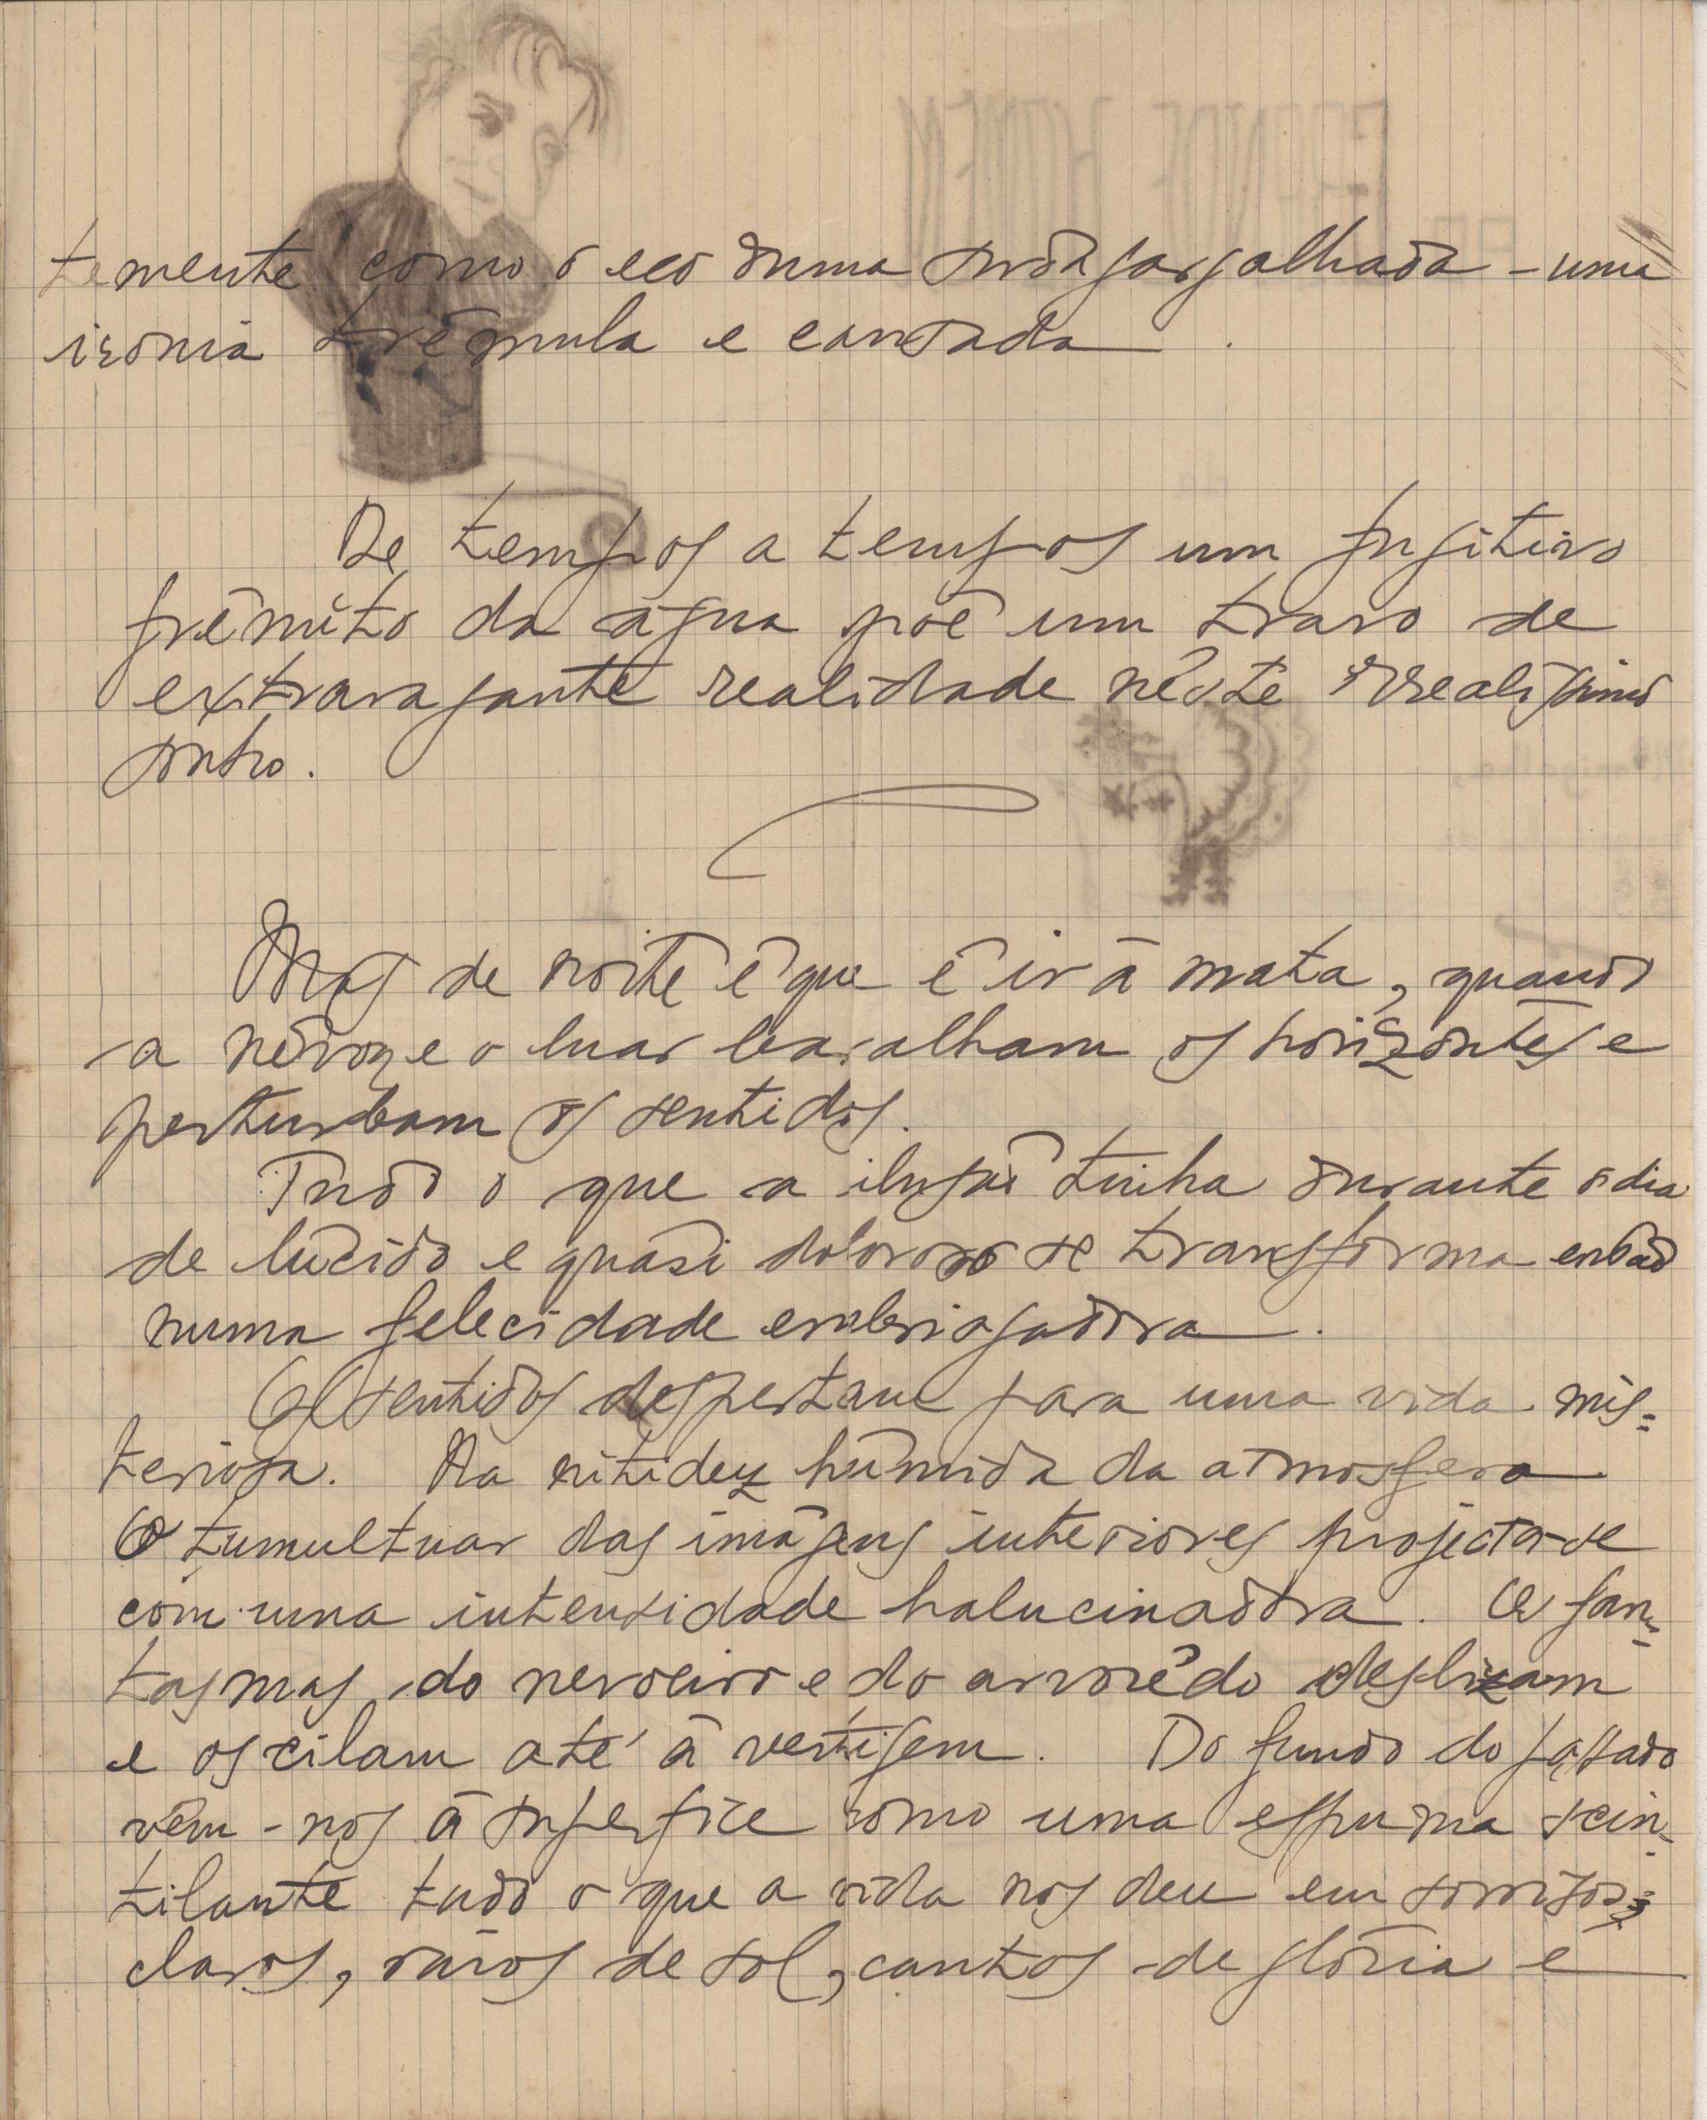 temente como o eco duma surda gargalhada - uma
ironia trémula e cansada.
De tempos a tempos um fugitivo
frémito da água põe um travo de
extravagante realidade néste irrealissimo
sonho.
Mas de noite é que é ir á mata, quando
a névoa e o luar baralham os horizontes e
perturbam os sentidos.
Tudo o que a ilusão tinha durante o dia
de lúcido e quási doloroso se transforma então
numa felecidade embriagadora.
Os sentidos despertam para uma vida mis-
teriosa. Na nitidez húmida da atmosfera
O tumultuar das imágens interiores projecta-se
com uma intensidade halucinadora. Os fan-
tasmas do nevoeiro e do arvorêdo deslizam
e oscilam até á vertigem. Do fundo do passado
vêm-nos á superfice como uma espuma scin-
tilante tudo o que a vida nos deu em sorrisos
claros, ráios de sol, cantos de glória e